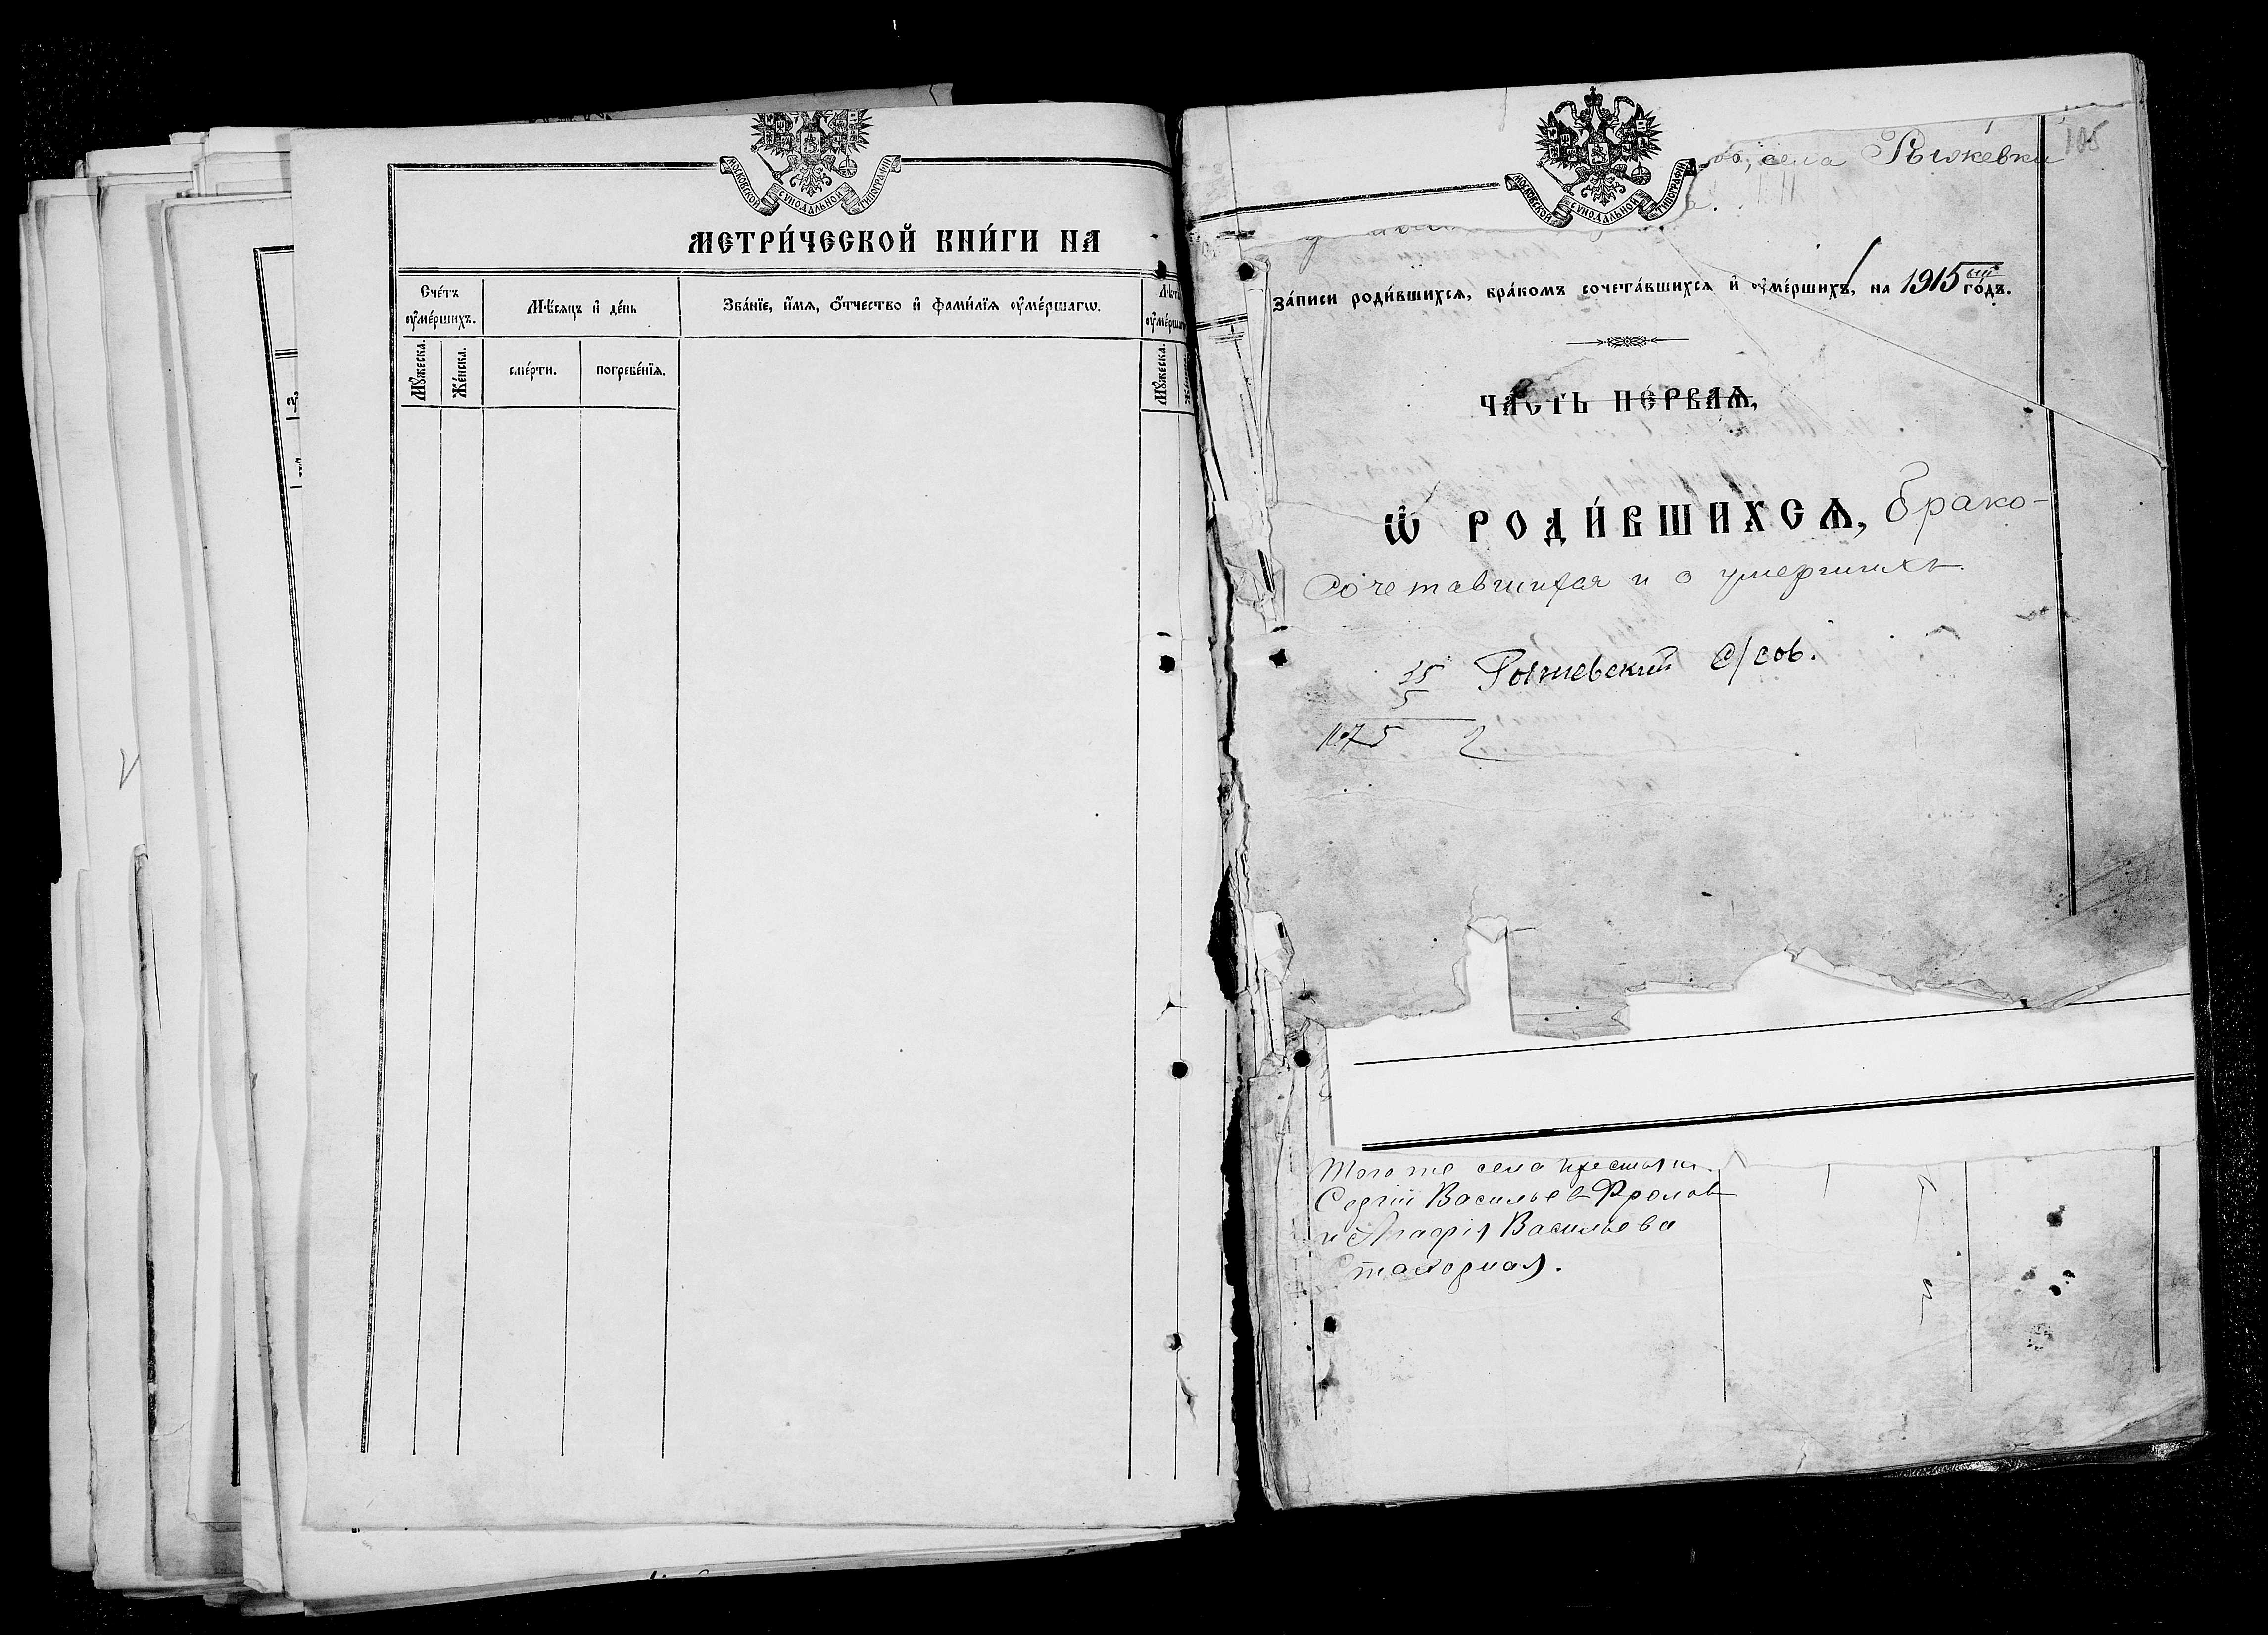 МОСКОВСКОЙ СѴНОДАЛЬНОЙ ТИПОГРАФІИ
МЕТРИ́ЧЕСКОЙ КНИ́ГИ НА
Сче́тъ ᲂу҆ме́ршихъ.
Мѣ́сяцъ и҆ де́нь
Зва́нїе, и҆́мѧ, ѻ҆́тчество и҆ фами́лїѧ ᲂу҆ме́ршагѡ.
Лѣ́т
ᲂу҆ме́рша
Мꙋ́жеска.
Же́нска.
сме́рти.
погребе́нїѧ.
Мꙋ́жеска.
105
села Рыжевки
МОСКОВСКОЙ СѴНОДАЛЬНОЙ ТИПОГРАФІИ
за́писи роди́вшихсѧ, бра́комъ сочета́вшихсѧ и҆ ᲂу҆ме́ршихъ, на 1915 ый го́дъ.
ЧА́СТЬ ПЕ́РВАѦ,
Ѽ РОДИ́ВШИХСѦ, брако-
сочетавшихся и о умершихъ
Рыжевский с/сов.
Того же села крестьян.
Сергій Васильевъ Фроловъ
и Агафія Васильева